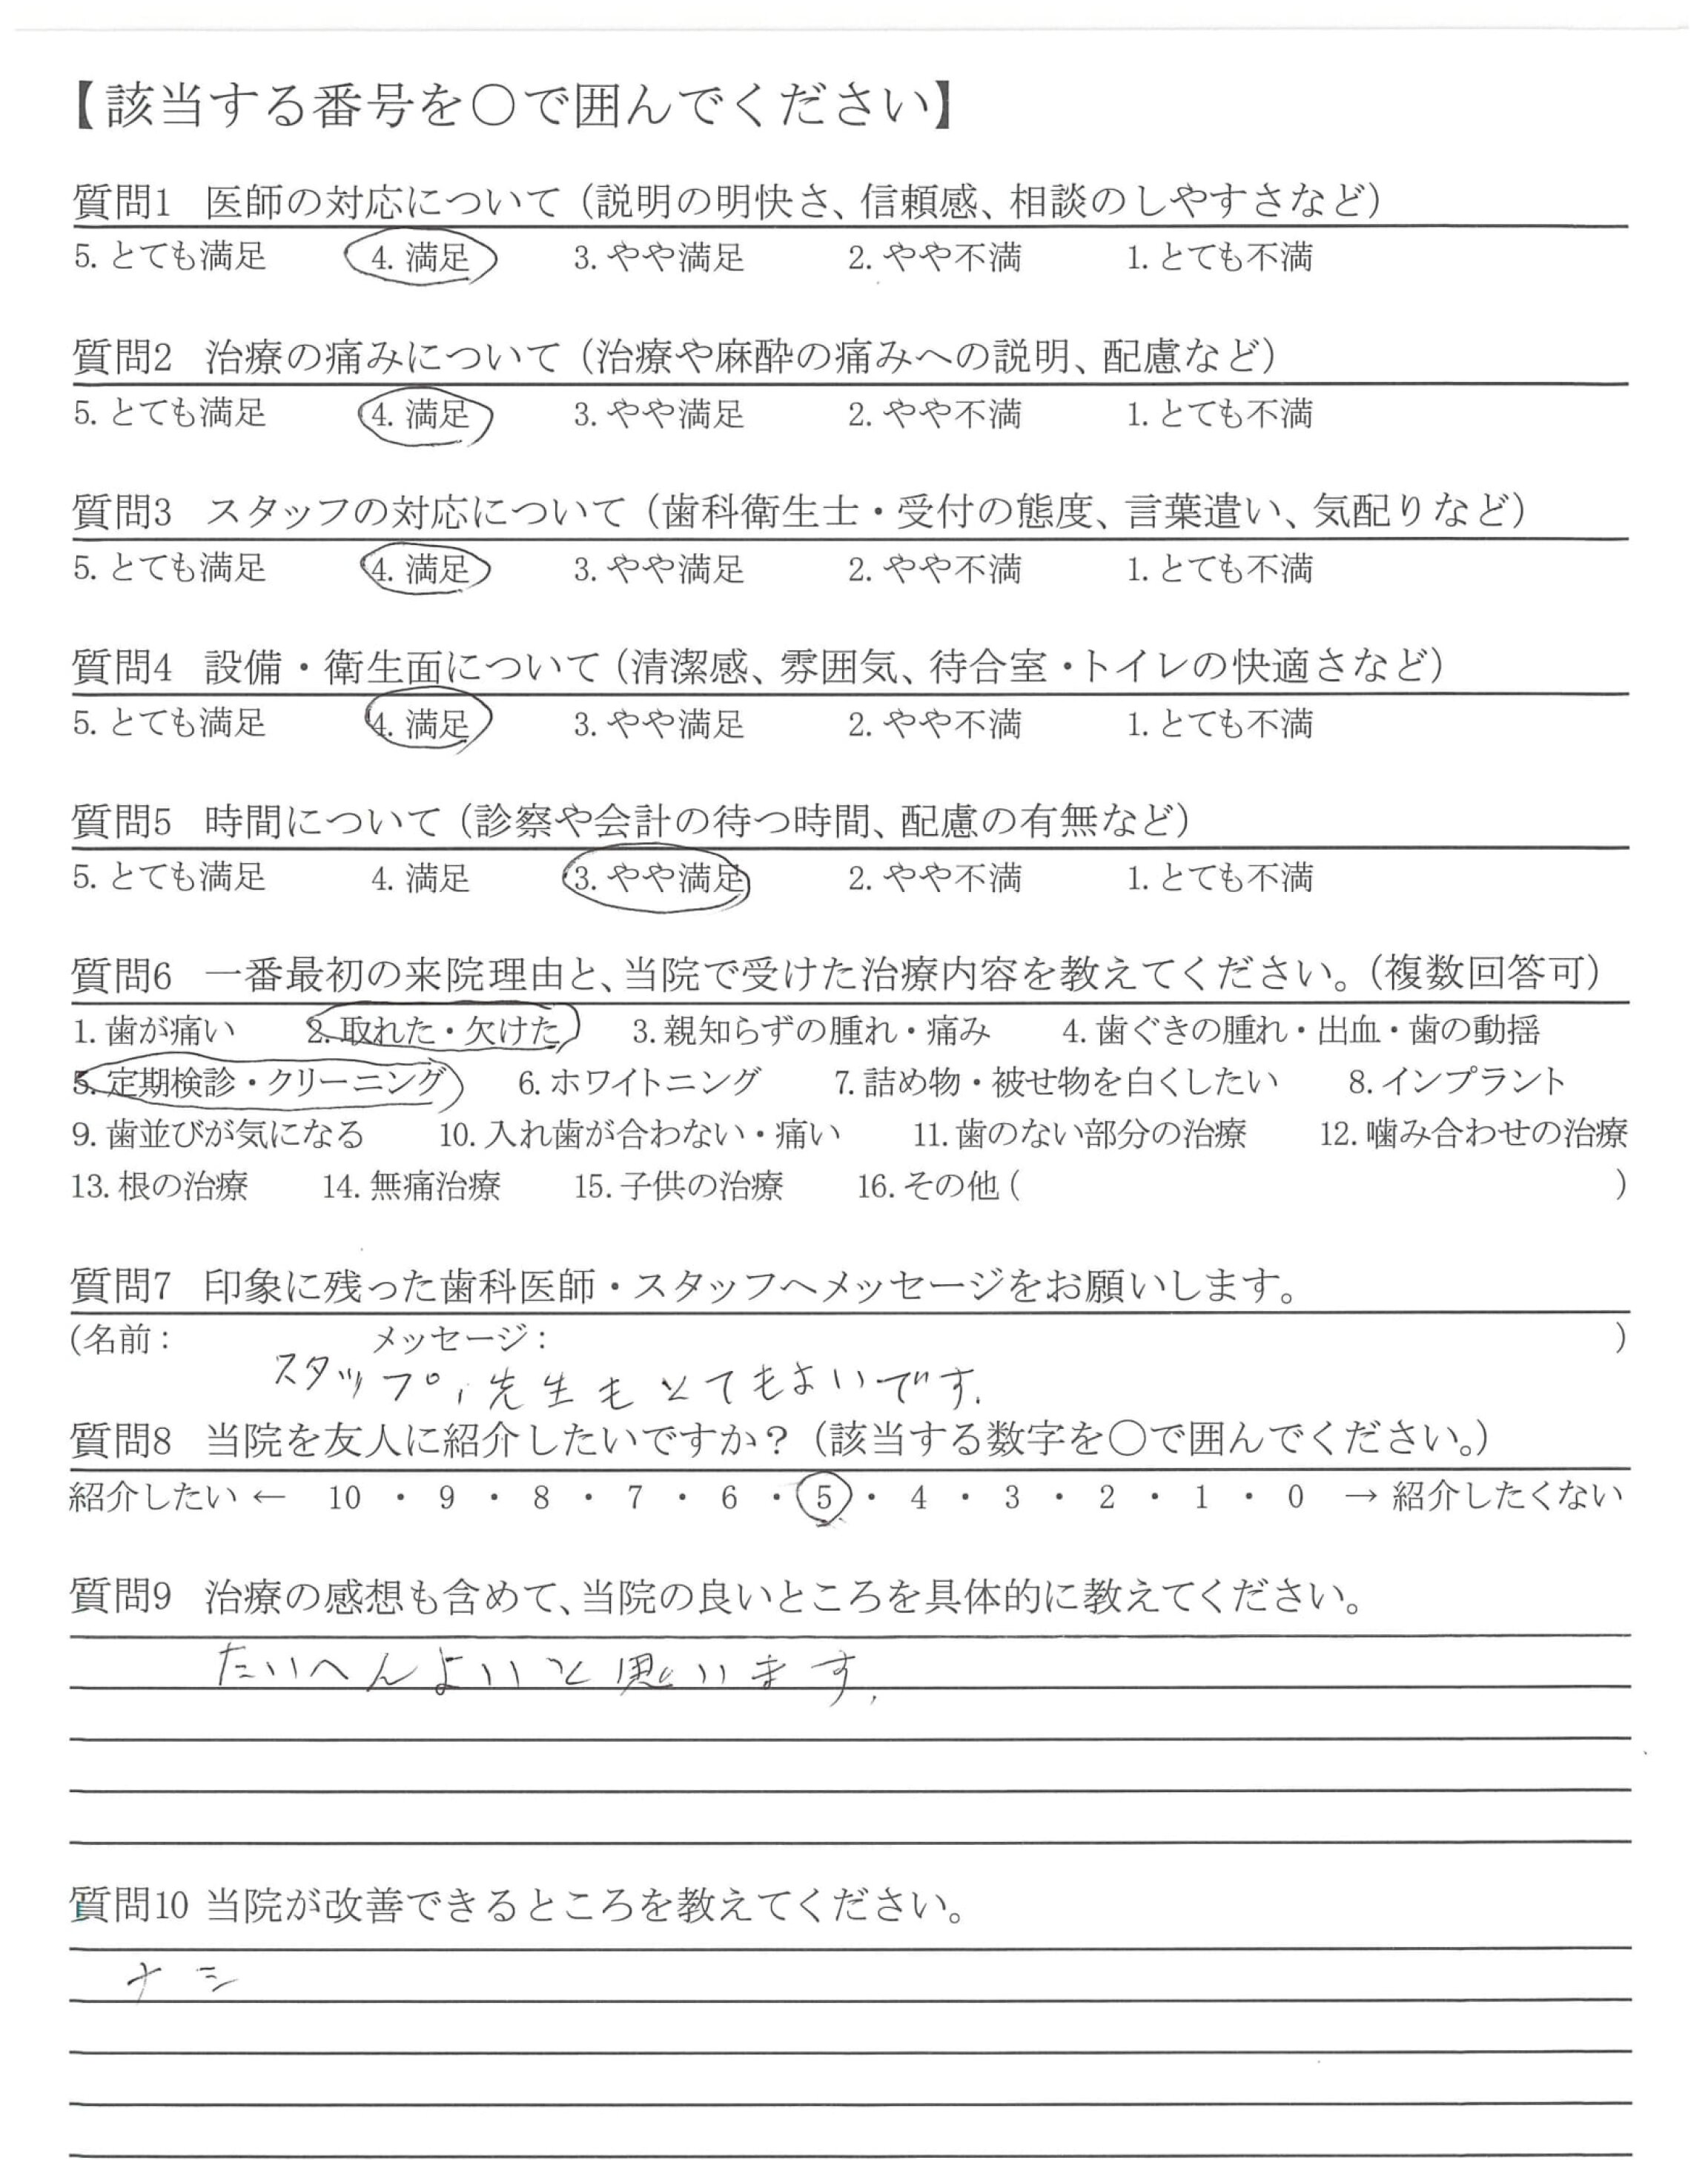 【該当する番号を○で囲んでください】
質問1 医師の対応について（説明の明快さ、信頼感、相談のしやすさなど）
5. とても満足 4. 満足 3. やや満足 2. やや不満 1. とても不満
質問2 治療の痛みについて（治療や麻酔の痛みへの説明、配慮など）
5. とても満足 4. 満足 3. やや満足 2. やや不満 1. とても不満
質問3 スタッフの対応について（歯科衛生士・受付の態度、言葉遣い、気配りなど）
5. とても満足 4. 満足 3. やや満足 2. やや不満 1. とても不満
質問4 設備・衛生面について（清潔感、雰囲気、待合室・トイレの快適さなど）
5. とても満足 4. 満足 3. やや満足 2. やや不満 1. とても不満
質問5 時間について（診察や会計の待つ時間、配慮の有無など）
5. とても満足 4. 満足 3. やや満足 2. やや不満 1. とても不満
質問6 一番最初の来院理由と、当院で受けた治療内容を教えてください。（複数回答可）
1. 歯が痛い 2. 取れた・欠けた 3. 親知らずの腫れ・痛み 4. 歯ぐきの腫れ・出血・歯の動揺
5. 定期検診・クリーニング 6. ホワイトニング 7. 詰め物・被せ物を白くしたい 8. インプラント
9. 歯並びが気になる 10. 入れ歯が合わない・痛い 11. 歯のない部分の治療 12. 噛み合わせの治療
13. 根の治療 14. 無痛治療 15. 子供の治療 16. その他（ ）
質問7 印象に残った歯科医師・スタッフへメッセージをお願いします。
（名前： メッセージ： ）
スタップ、先生もとてもよいです.
質問8 当院を友人に紹介したいですか？（該当する数字を○で囲んでください。）
紹介したい ← 10 ・ 9 ・ 8 ・ 7 ・ 6 ・ 5 ・ 4 ・ 3 ・ 2 ・ 1 ・ 0 → 紹介したくない
質問9 治療の感想も含めて、当院の良いところを具体的に教えてください。
たいへんよいと思います.
質問10 当院が改善できるところを教えてください。
ナシ